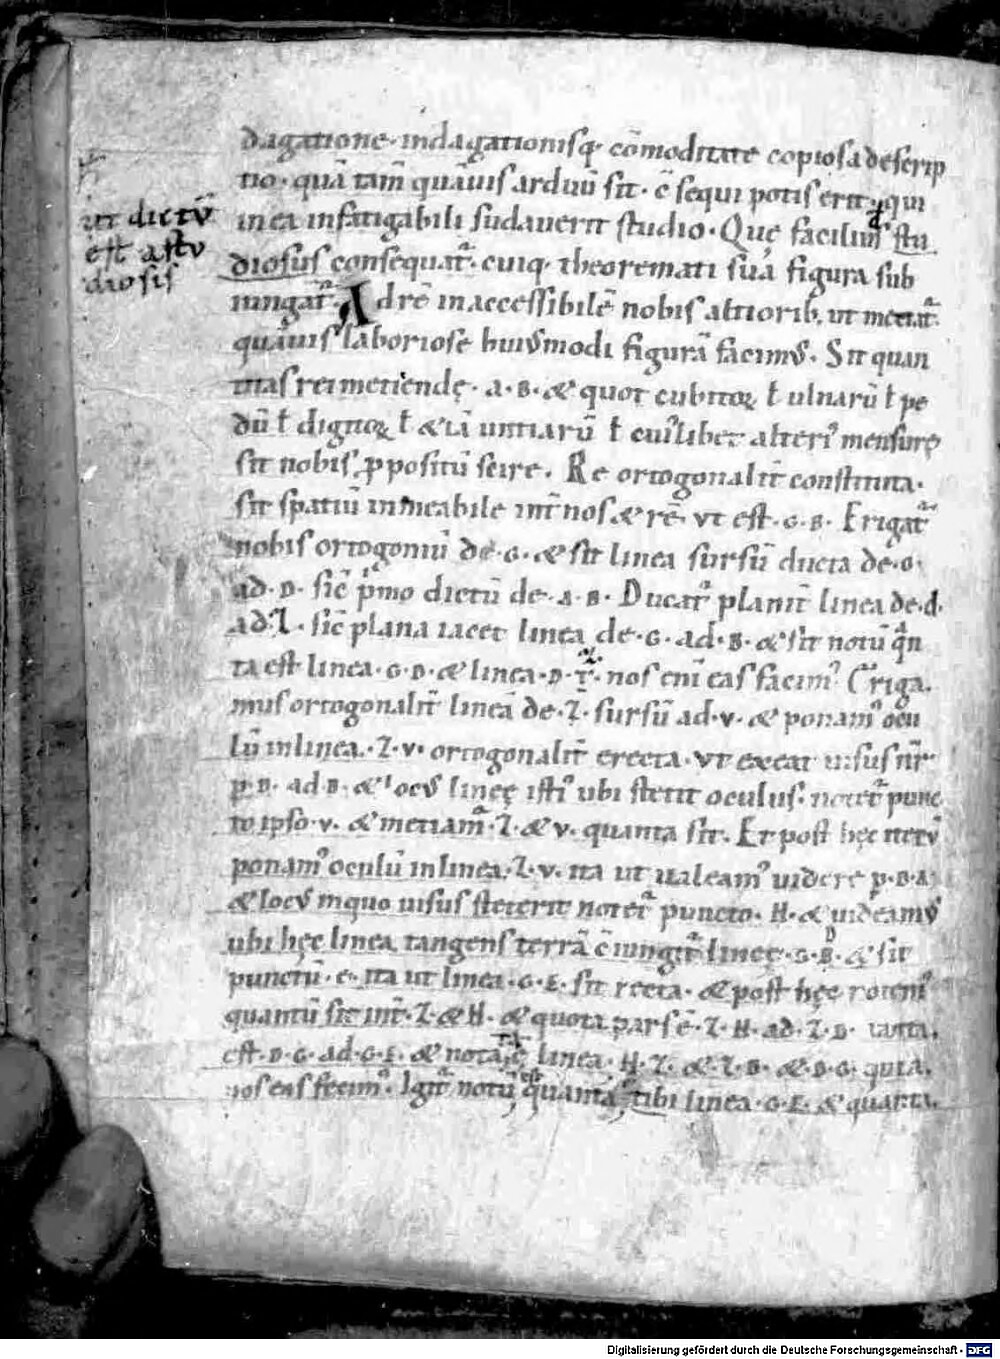 ut dictū
est astu
diosis
dagatione· indagationisq· cōmoditate copiosa descrip
tio· quā tam̄ quāuis arduū sit· c̄sequi potis erit· qui
in ea infatigabili sudauerit studio· Quę facilius stu
diosus consequat᷑· cuiq· theoremati suā figura sub
iungāt᷑· Ad rē inaccessibilē nobis altiorib, ut metiat᷑·
quāuis laboriose huiusmodi figurā facim᷒· Sit quan
titas rei metiendę· a·B· & quot cubitoꝝ ł ulnarū ł pe
dū ł digitoꝝ ł & iā untiarū ł cui᷒libet alteri᷒ mensurę
sit nobis ꝓpositū scire. Re ortogonalit̄ constituta·
sit spatiū inmeabile int̄ nos & rē· ut est·G·B· Erigat᷑
nobis ortogoniū de·G· & sit linea sursū ducta de·G·
ad·D· sic̄ pⁱmo dictū de·A·B· Ducat᷑ planit̄ linea de·d·
ad·Z· sic̄ plana iacet linea de·G·ad·B· & sit notū qⁿ
ta est linea·G·D· & linea·D·Z· nos eni᷒ eas facim᷒ Eriga
mus ortogonalit̄ lineā de·Z· sursū ad·v· & ponam᷒ ocu
lū in linea·Z·v· ortogonalit̄ erecta· ut exeat uisus nr̄
ꝑ·D·ad·B· & loc᷒ lineę isti᷒ ubi stetit oculus· notet᷑ punc
to ipso·v· & metiam᷑·Z·& v· quanta sit· Et post hęc iterū
ponam᷒ oculū in linea·Z·v· ita ut ualeam᷒ uidere ꝑ·D·A·
& locū in quo uisus steterit notet᷑ puncto·H·& uideam᷒
ubi hęc linea tangens terrā c̄iungit᷑ lineę·G·D B·& sit
punctū·e· ita ut linea·G·E·sit recta· & post hęc
quantū sit int̄·Z·&H· & quota pars ē·Z·H·ad·Z·D· tanta
est·D·G·ad·G·E· & nota linea·H·Z·&·Z·D·&·D·G· quia
nos eas fecim᷒· Igit̄ notū est quanta tibi linea·G·E· & quanta
Digitalisierung gefördert durch die Deutsche Forschungsgemeinschaft - DFG